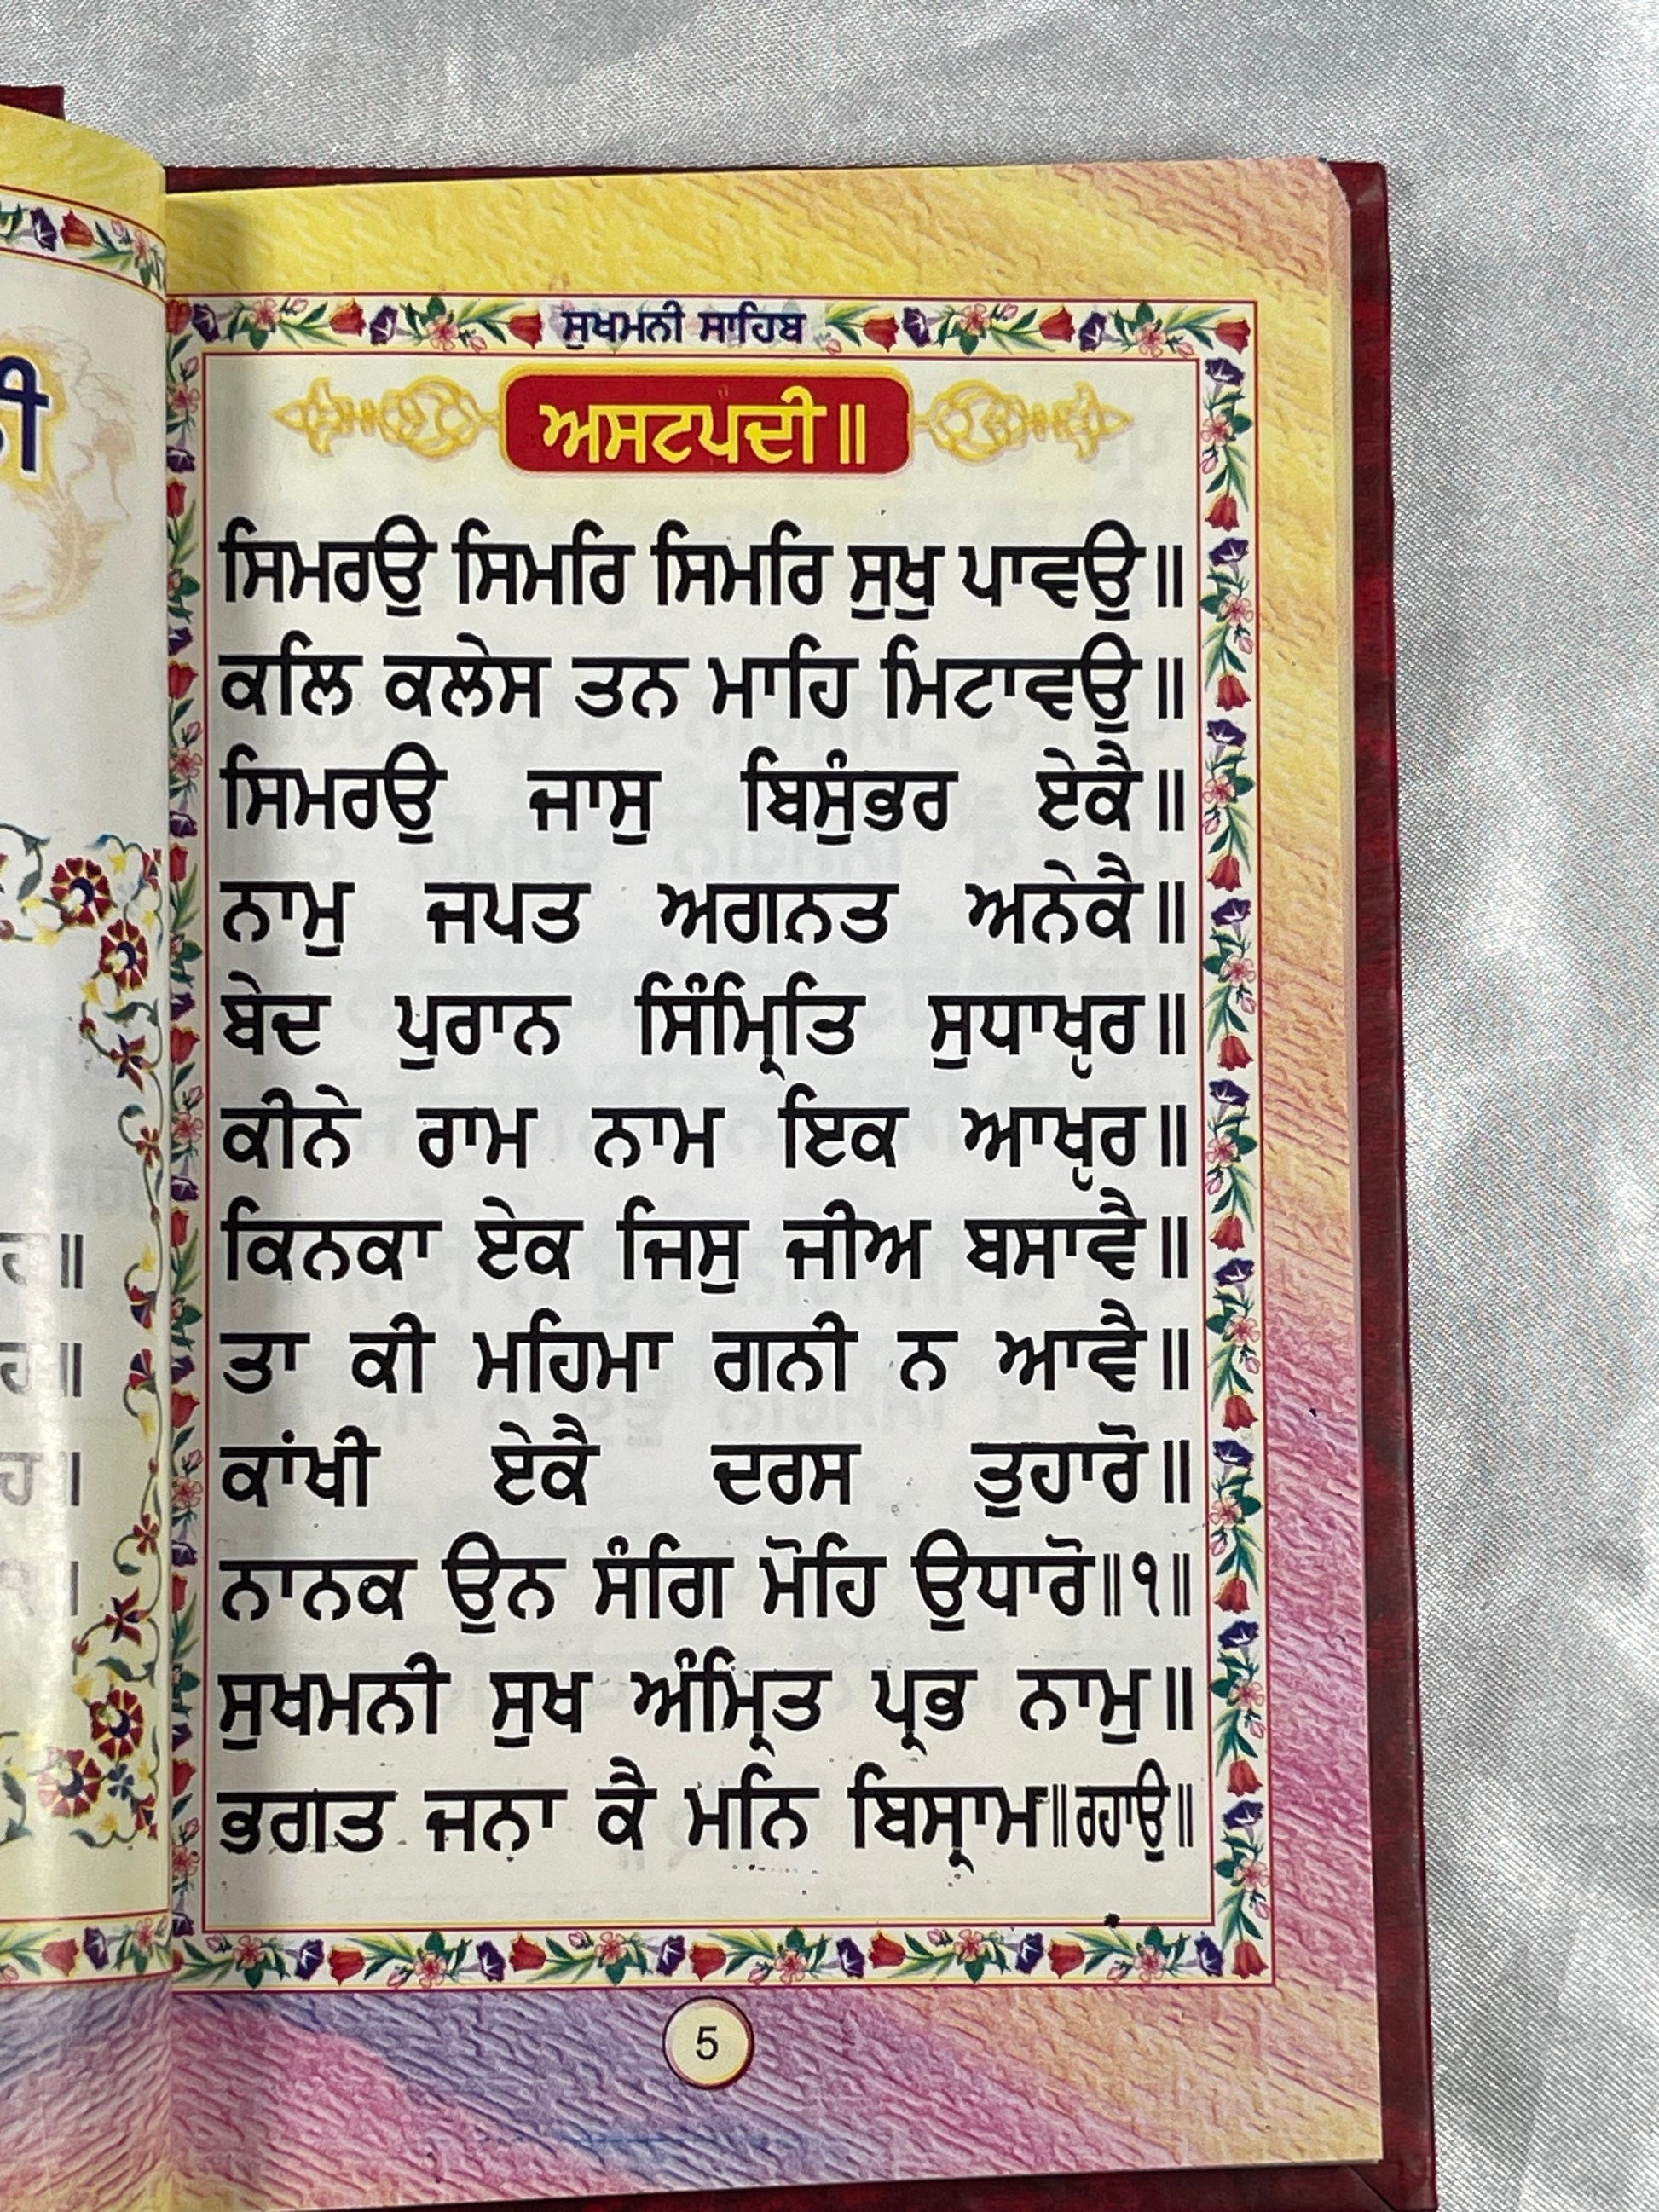 ਸੁਖਮਨੀ ਸਾਹਿਬ
ਅਸਟਪਦੀ॥
ਸਿਮਰਉ ਸਿਮਰਿ ਸਿਮਰਿ ਸੁਖੁ ਪਾਵਉ॥
ਕਲਿ ਕਲੇਸ ਤਨ ਮਾਹਿ ਮਿਟਾਵਉ॥
ਸਿਮਰਉ ਜਾਸੁ ਬਿਸੁੰਭਰ ਏਕੈ॥
ਨਾਮੁ ਜਪਤ ਅਗਨਤ ਅਨੇਕੈ॥
ਬੇਦ ਪੁਰਾਨ ਸਿੰਮ੍ਰਿਤਿ ਸੁਧਾਖੵਰ॥
ਕੀਨੇ ਰਾਮ ਨਾਮ ਇਕ ਆਖੵਰ॥
ਕਿਨਕਾ ਏਕ ਜਿਸੁ ਜੀਅ ਬਸਾਵੈ॥
ਤਾ ਕੀ ਮਹਿਮਾ ਗਨੀ ਨ ਆਵੈ॥
ਕਾਂਖੀ ਏਕੈ ਦਰਸ ਤੁਹਾਰੋ॥
ਨਾਨਕ ਉਨ ਸੰਗਿ ਮੋਹਿ ਉਧਾਰੋ॥੧॥
ਸੁਖਮਨੀ ਸੁਖ ਅੰਮ੍ਰਿਤ ਪ੍ਰਭ ਨਾਮੁ॥
ਭਗਤ ਜਨਾ ਕੈ ਮਨਿ ਬਿਸ੍ਰਾਮ॥ਰਹਾਉ॥
5